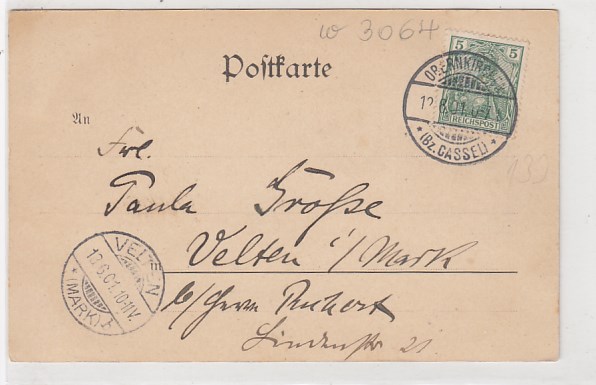 w 3064
Postkarte
5 5
REICHSPOST
OBERNKIRCHEN
(BZ. CASSEL)
An
Frl.
Paula Große
Velten i/Mark
b/Herrn
Lindenstr 21
VELTEN
12.6.01.10-11V.
(MARK)
139